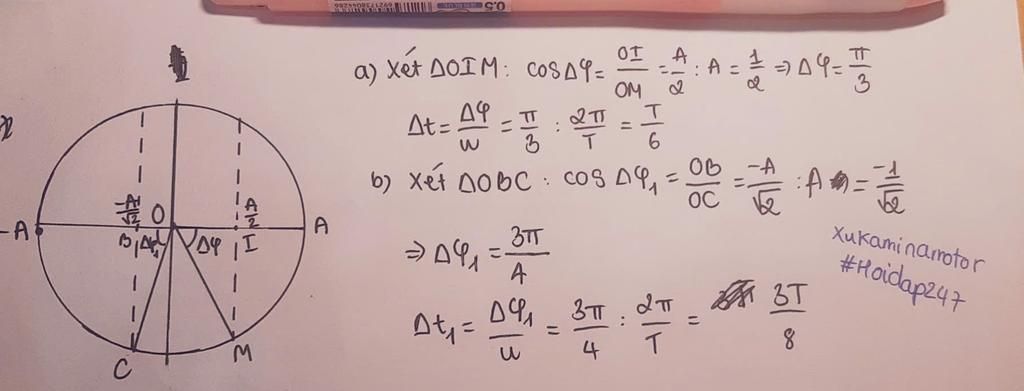 0.5
6921738044286
a) Xét ΔOIM: cosΔφ = OI/OM = A/2 : A = 1/2 ⇒ Δφ = π/3
Δt = Δφ/w = π/3 : 2π/T = T/6
b) Xét ΔOBC: cos Δφ₁ = OB/OC = -A/√2 : A = -1/√2
⇒ Δφ₁ = 3π/A
Δt₁ = Δφ₁/w = 3π/4 : 2π/T = 3T/8
xukaminamotor
#Hoidap247
-A/√2 O A/2
-A B Δφ₁ Δφ I A
C M